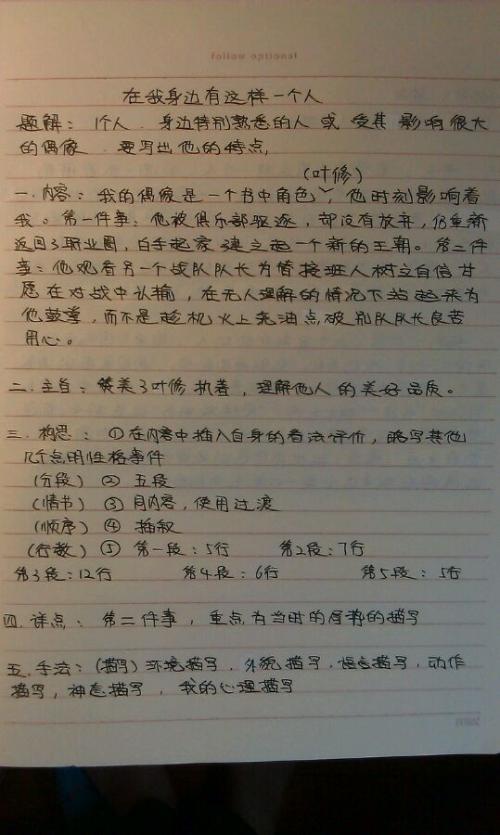 在我身边有这样一个人
题解：1个人．身边特别熟悉的人 或 受其 影响很大
的偶像．要写出他的特点，
（叶修）
一．内容：我的偶像是一个书中角色，他时刻影响着
我。第一件事：他被俱乐部驱逐，却没有放弃，仍重新
返回了职业圈，白手起家建立起一个新的王朝。第二件
事：他观看另一个战队队长为替接班人树立自信甘
愿在对战中认输，在无人理解的情况下站起来为
他鼓掌，而不是趁机火上浇油点破别队队长良苦
用心。
二．主旨：赞美了叶修执着，理解他人的美好品质。
三．构思：①在内容中插入自身的看法评价，略写其他
几个点明性格事件
（分段）② 五段
（情书）③ 月内容，使用过渡
（顺序）④ 插叙
（行数）⑤ 第一段：5行 第2段：7行
第3段：12行 第4段：6行 第5段：5行
四．详点：第二件事，重点为当时的描写
五．手法：（描写）环境描写．外貌描写．语言描写，动作
描写，神态描写，我的心理描写